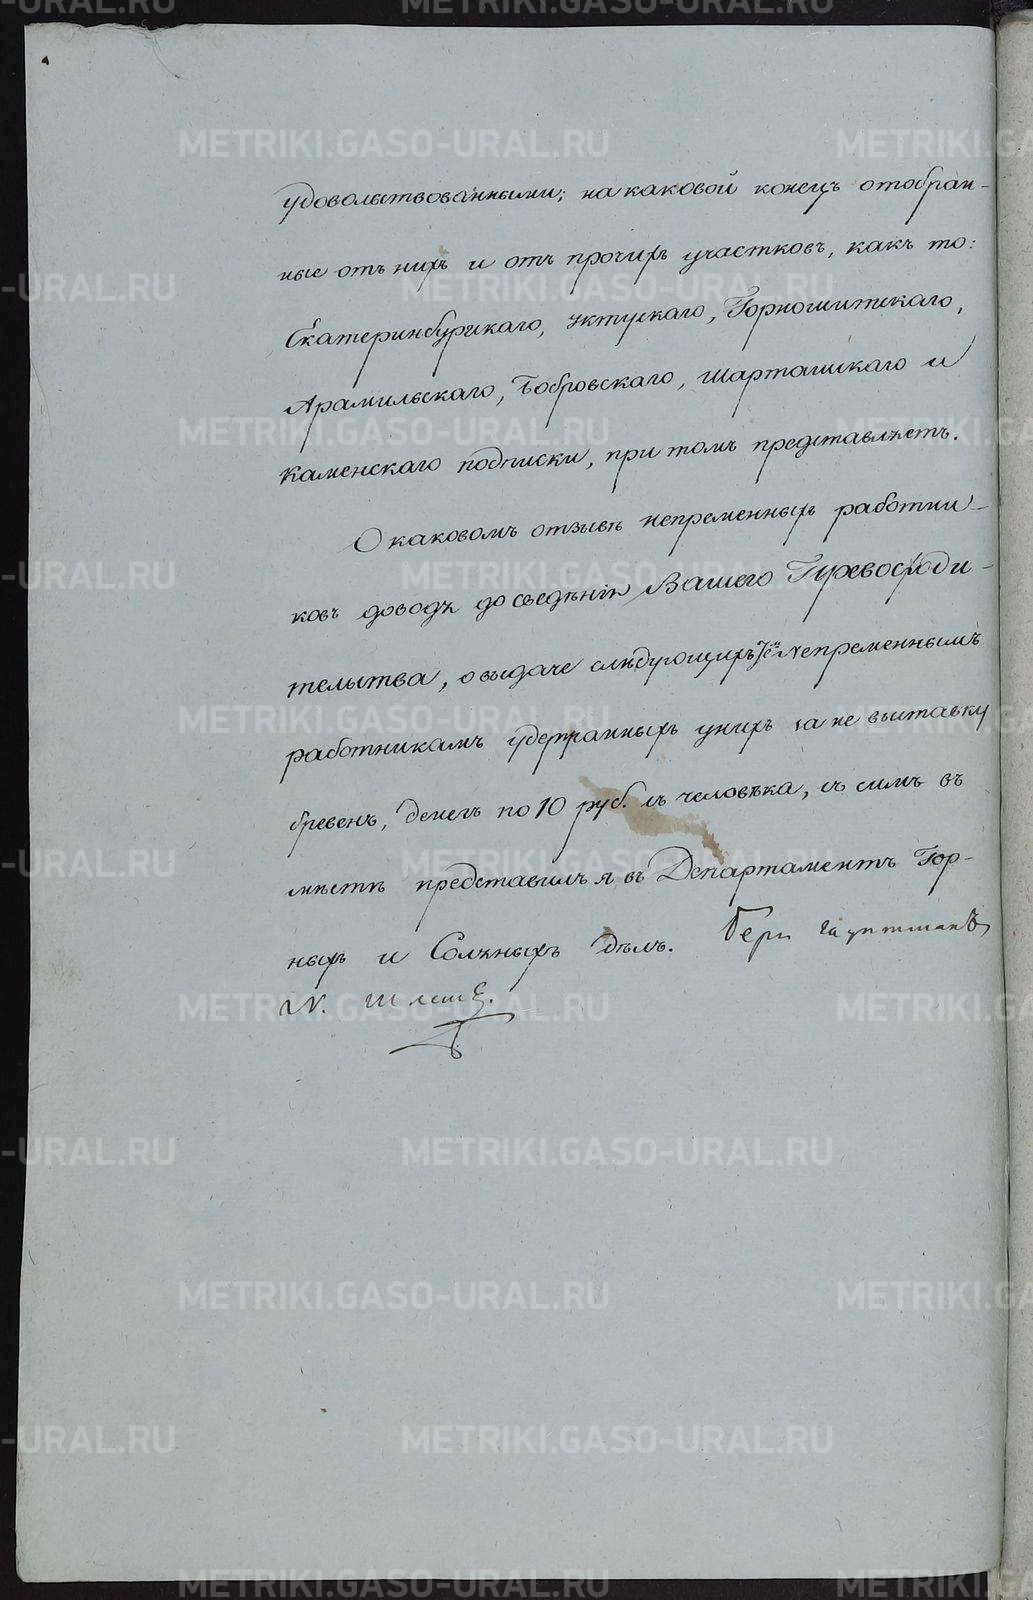 удовольствованными; на каковой конецъ отобран-
ные отъ нихъ и отъ прочихъ участковъ, какъ то:
Екатеринбургскаго, Уктускаго, Горношитскаго,
Арамильскаго, Бобровскаго, Шарташскаго и
Каменскаго подписки, при томъ представляетъ.
О каковомъ отзывѣ непременныхъ работни-
ковъ доводя до сведѣнія Вашего Превосходи-
тельства, о выдаче слѣдующихъ непременнымъ
работникамъ удержанныхъ у нихъ за не выставку
бревенъ, денегъ по 10 руб. съ человѣка, съ симъ въ
мѣстѣ представилъ я въ Департаментъ Гор-
ныхъ и Соляныхъ дѣлъ. Берг гауптманъ
N. Шленё.
METRIKI.GASO-URAL.RU